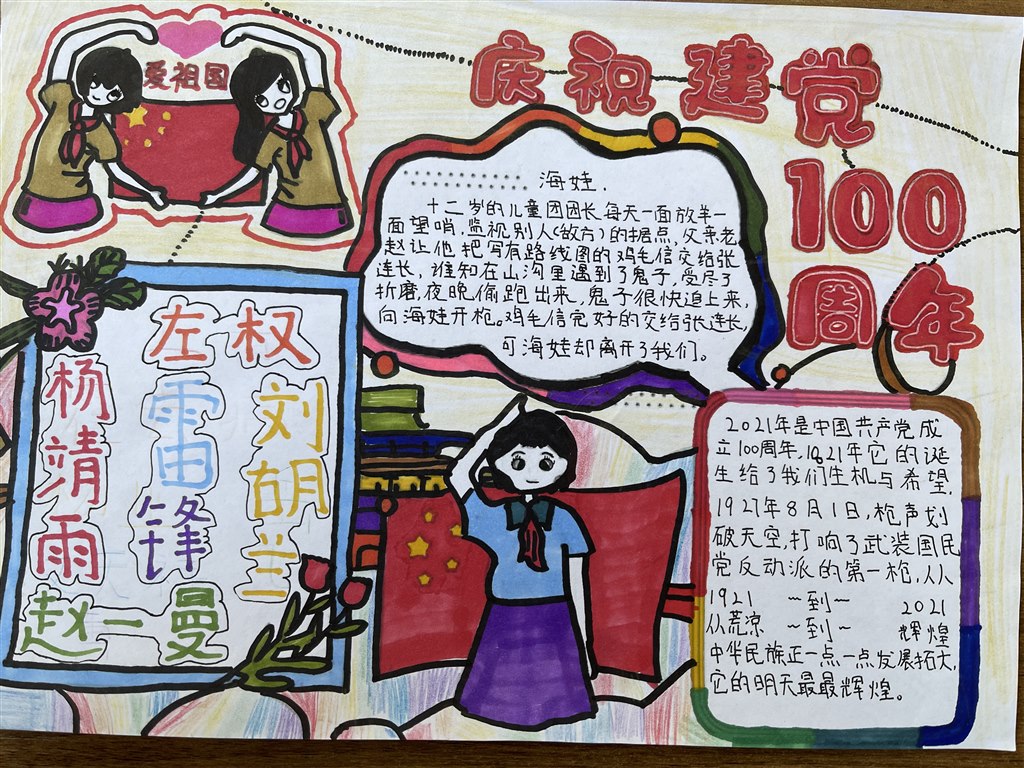 爱祖国
庆祝建党
100
周年
海娃.
十二岁的儿童团团长,每天一面放羊一
面望哨,监视别人(敌方)的据点,父亲老
赵让他把写有路线图的鸡毛信交给张
连长,谁知在山沟里遇到了鬼子,受尽了
折磨,夜晚偷跑出来,鬼子很快追上来,
向海娃开枪。鸡毛信完好的交给张连长,
可海娃却离开了我们。
左权
杨靖雨
雷田锋
刘胡兰
赵一曼
2021年是中国共产党成
立100周年,1921年它的诞
生给了我们生机与希望,
1927年8月1日,枪声划
破天空,打响了武装国民
党反动派的第一枪,从
1921 ~到~ 2021
从荒凉 ~到~ 辉煌
中华民族正一点一点发展拓大,
它的明天最最辉煌。